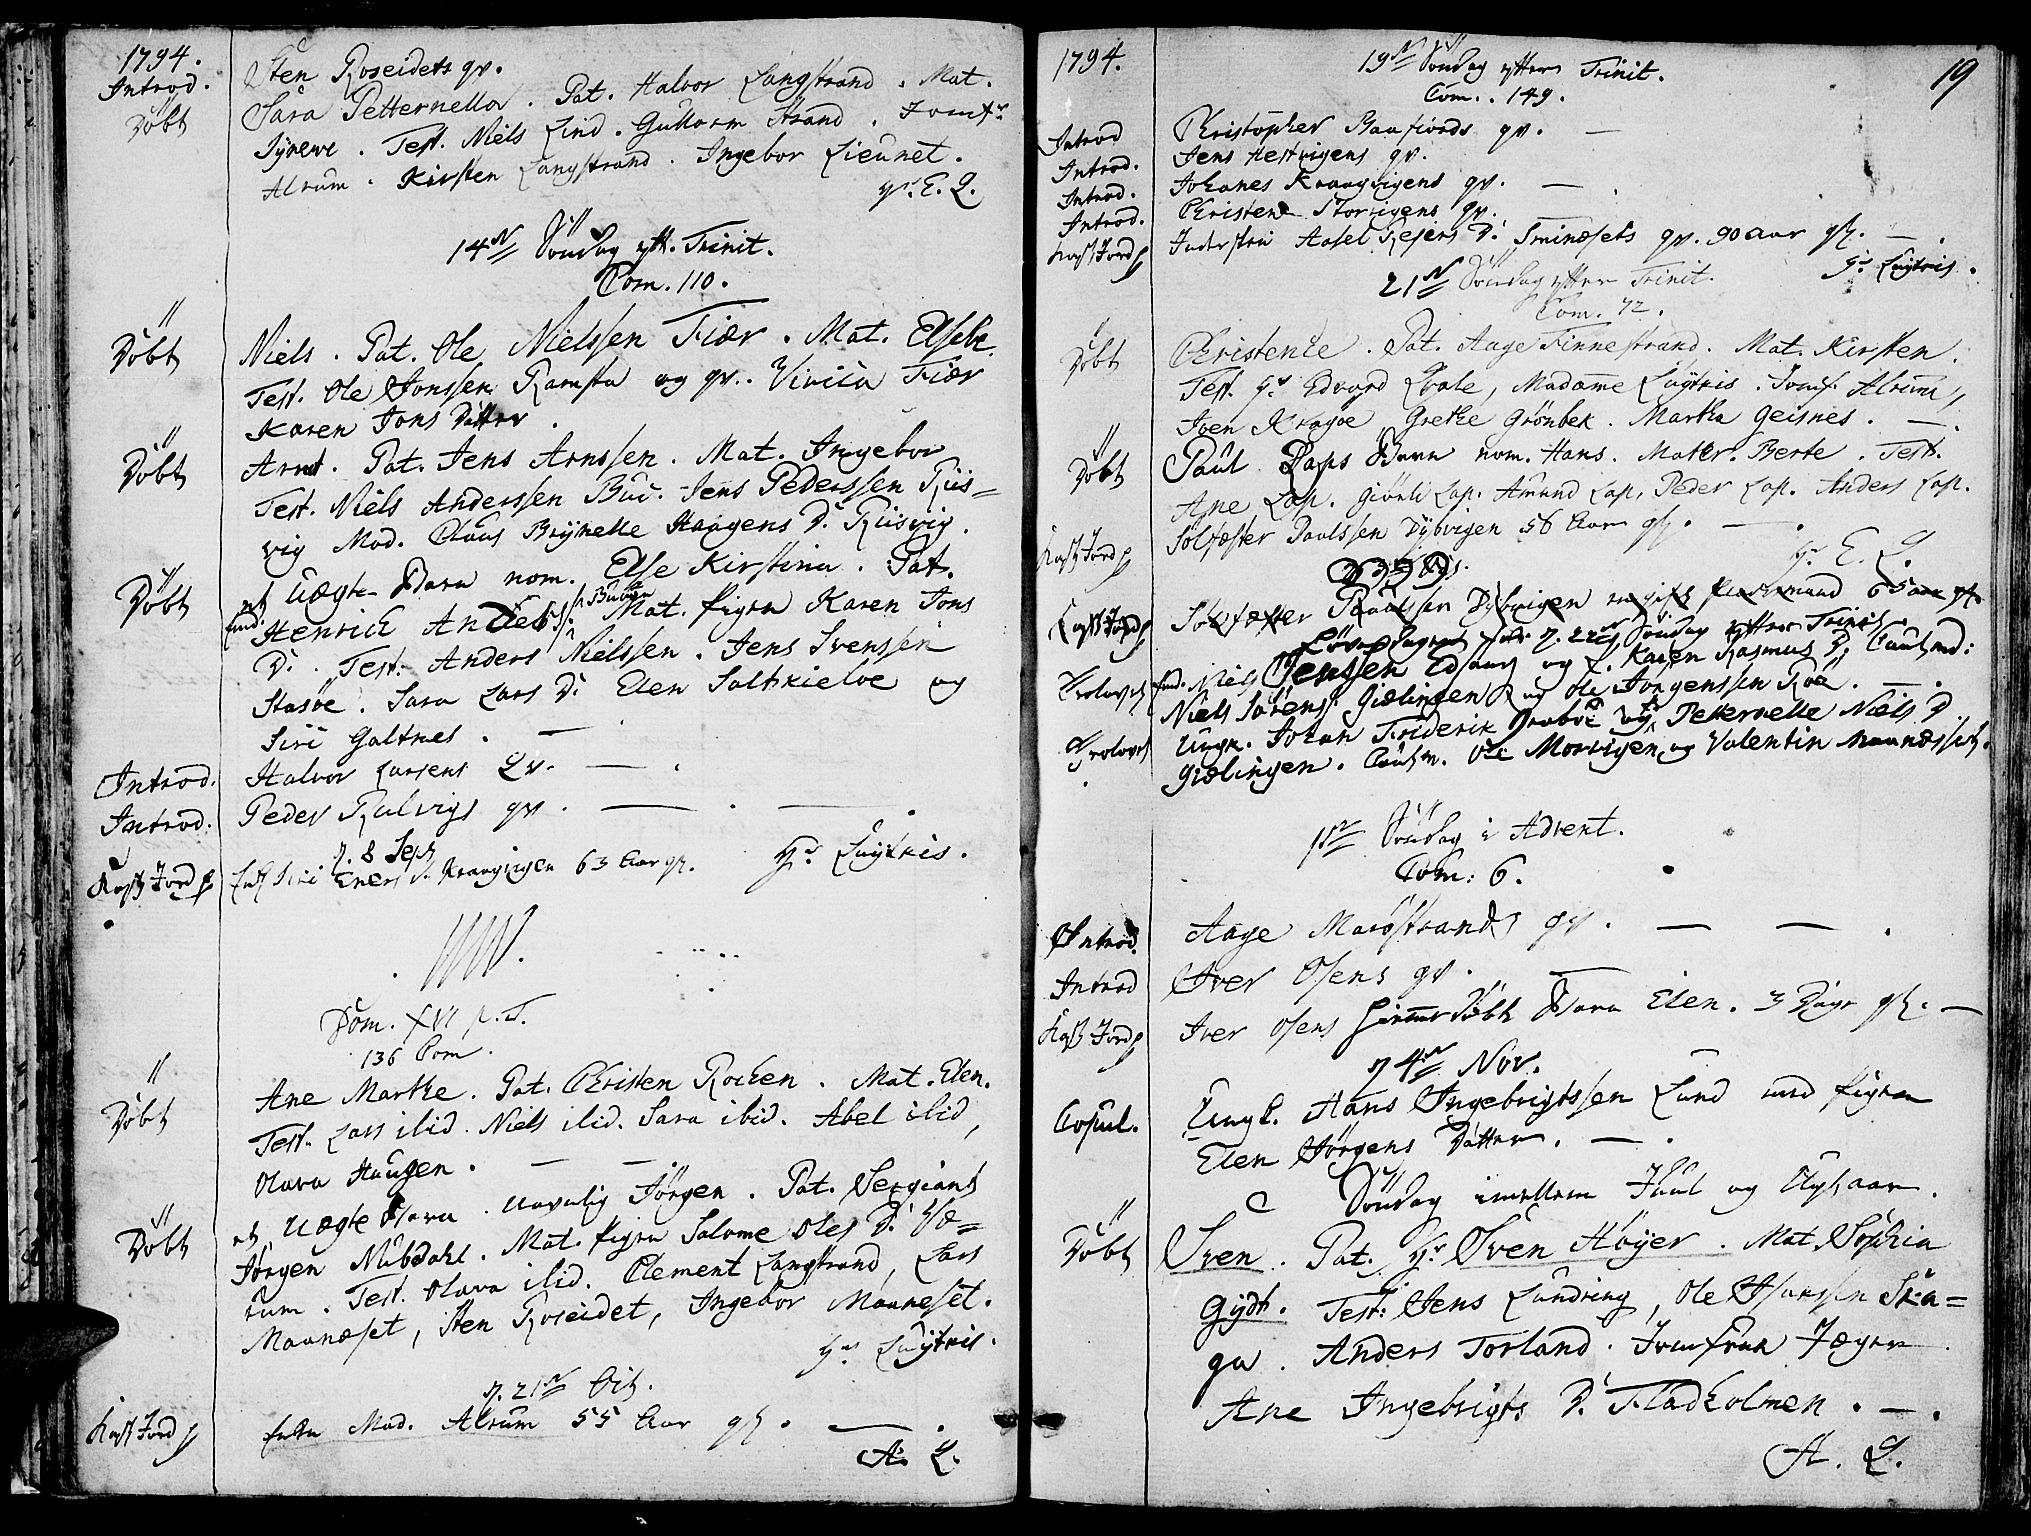 1794.
Introd. Sten Roseidets qv.
Döbt Sara Petternella. Pat. Halvor Langstrand. Mat.
Synewe. Test. Niels Lind. Guttorm Strand. Jomfr
Alrum. Kirsten Langstrand. Ingebor Lieunet.
Hr. E. L.
14de Söndag eft. Trinit.
Com. 110.
Döbt Niels. Pat. Ole Nielssen Fiær. Mat. Elsebe.
Test. Ole Jonssen Ramsta og qv. Vivica Fiær
Karen Jons Datter.
Döbt Arnt. Pat. Jens Arnssen. Mat. Ingebor
Test. Niels Anderssen Bue. Jens Pederssen Riis=
vig Mad. Claus Brynelle Haagens D. Riisvig.
Döbt et uægte Barn nom. Else Kirstina. Pat.
Henrich Mat. Pigen Karen Jons
D. Test. Anders Nielssen. Jens Svenssen
Stasöe. Sara Lars D. Elen Saltkielve og
Siri Galtnes. —
Introd. Halvor Larsens Qv. — .
Introd: Peder Rulvigs qv. — . — .
d. 8 Sept
Kast Jord p Siri Eners D. Kraagvigen 63 Aar gl. Hr Luytkis.
Dom. XVI p. T.
136 Com.
Döbt Ane Marthe. Pat. Christen Rochen. Mat. Elen.
Test. Lars ibid. Niels ibid. Sara ibid. Abel ibid,
Olava Haugen. — —
Döbt et uægte Barn navnlig Jörgen. Pat. Sergiant
Jörgen Nubdahl. Mat. Pigen Salome Oles D.
Test. Olava ibid. Clement Langstrand, Lars
Maanæset, Sten Roseidet, Ingebor Maaneset.
Hr Luytkis.
d. 21de Oct.
Kast Jord p Mad. Alrum 55 Aar gl. — .
A. L.
1794. 19
19de Söndag efter Trinit.
Com. 149.
Introd Christopher Baafiords qv. —
Introd. Jens Hestvigens qv.
Introd. Johanes Kraagvigens qv. — .
Introd. Christen Storvigens qv.
Kast Jord p Aasel D. Sminesets qv. 90 Aar gl. — .
Hr Luytkis.
21de Söndag efter Trinit.
Com. 72.
Döbt Christence. Pat. Aage Finnestrand. Mat. Kirsten.
Test. Hr Edvard Qvale, Madame Luytkis. Jomf. Alrum,
Iven Kragöe Grethe Grönbek. Martha Geisnes. — .
Döbt Paul Laps Barn nom. Hans. Mater. Berte. Test.
Ane Lap. Giörli Lap. Amund Lap, Peder Lap. Anders Lap.
Kast Jord p Solfæster Paulssen Dybvigen 56 Aar gl. — .
Hr E. L.
Kast Jord p Solfæster Paulssen Dybvigen en gift 65 Aar gl.
d. 22de Söndag efter Trinit.
Trolovet Niels Jenssen og P. Karen Rasmus D. Cautmd:
Niels Sörens. Giælingen og Ole Jörgenssen Röe. — .
Trolovet Ungk. Johan Friderik og Petternelle Niels D
Giælingen. Cautm. Ole Morvigen og Valentin Maanæsset.
1ste Söndag i Advent.
Com: 6.
Introd. Aage Maröstrands qv. — — .
Introd Iver Osens qv. —
Kast Jord p Iver Osens hiemmedöbt Barn Elen. 3 Dage gl. —
d 4de Nov.
Copul. Ungk. Hans Ingebrigtssen Lund med Pigen
Elen Jörgens Datter. — .
Söndag imellem Juul og Nytaar.
Döbt Sven. Pat. Hr Sven Höyer. Mat. Sophia
Gydt. Test: Jens Lundring, Ole Hanssen Ska=
ga. Anders Torland. Jomfrue Jæger.
Ane Ingebrigts D. Fladholmen. — .
A. L.